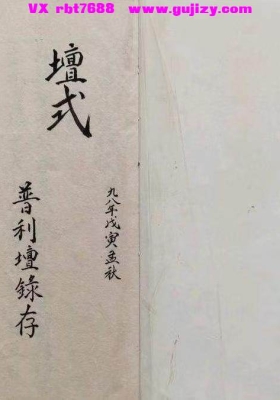 VX rbt7688 www.gujizy.com
壇式
九八年戊寅孟秋
普利壇錄存